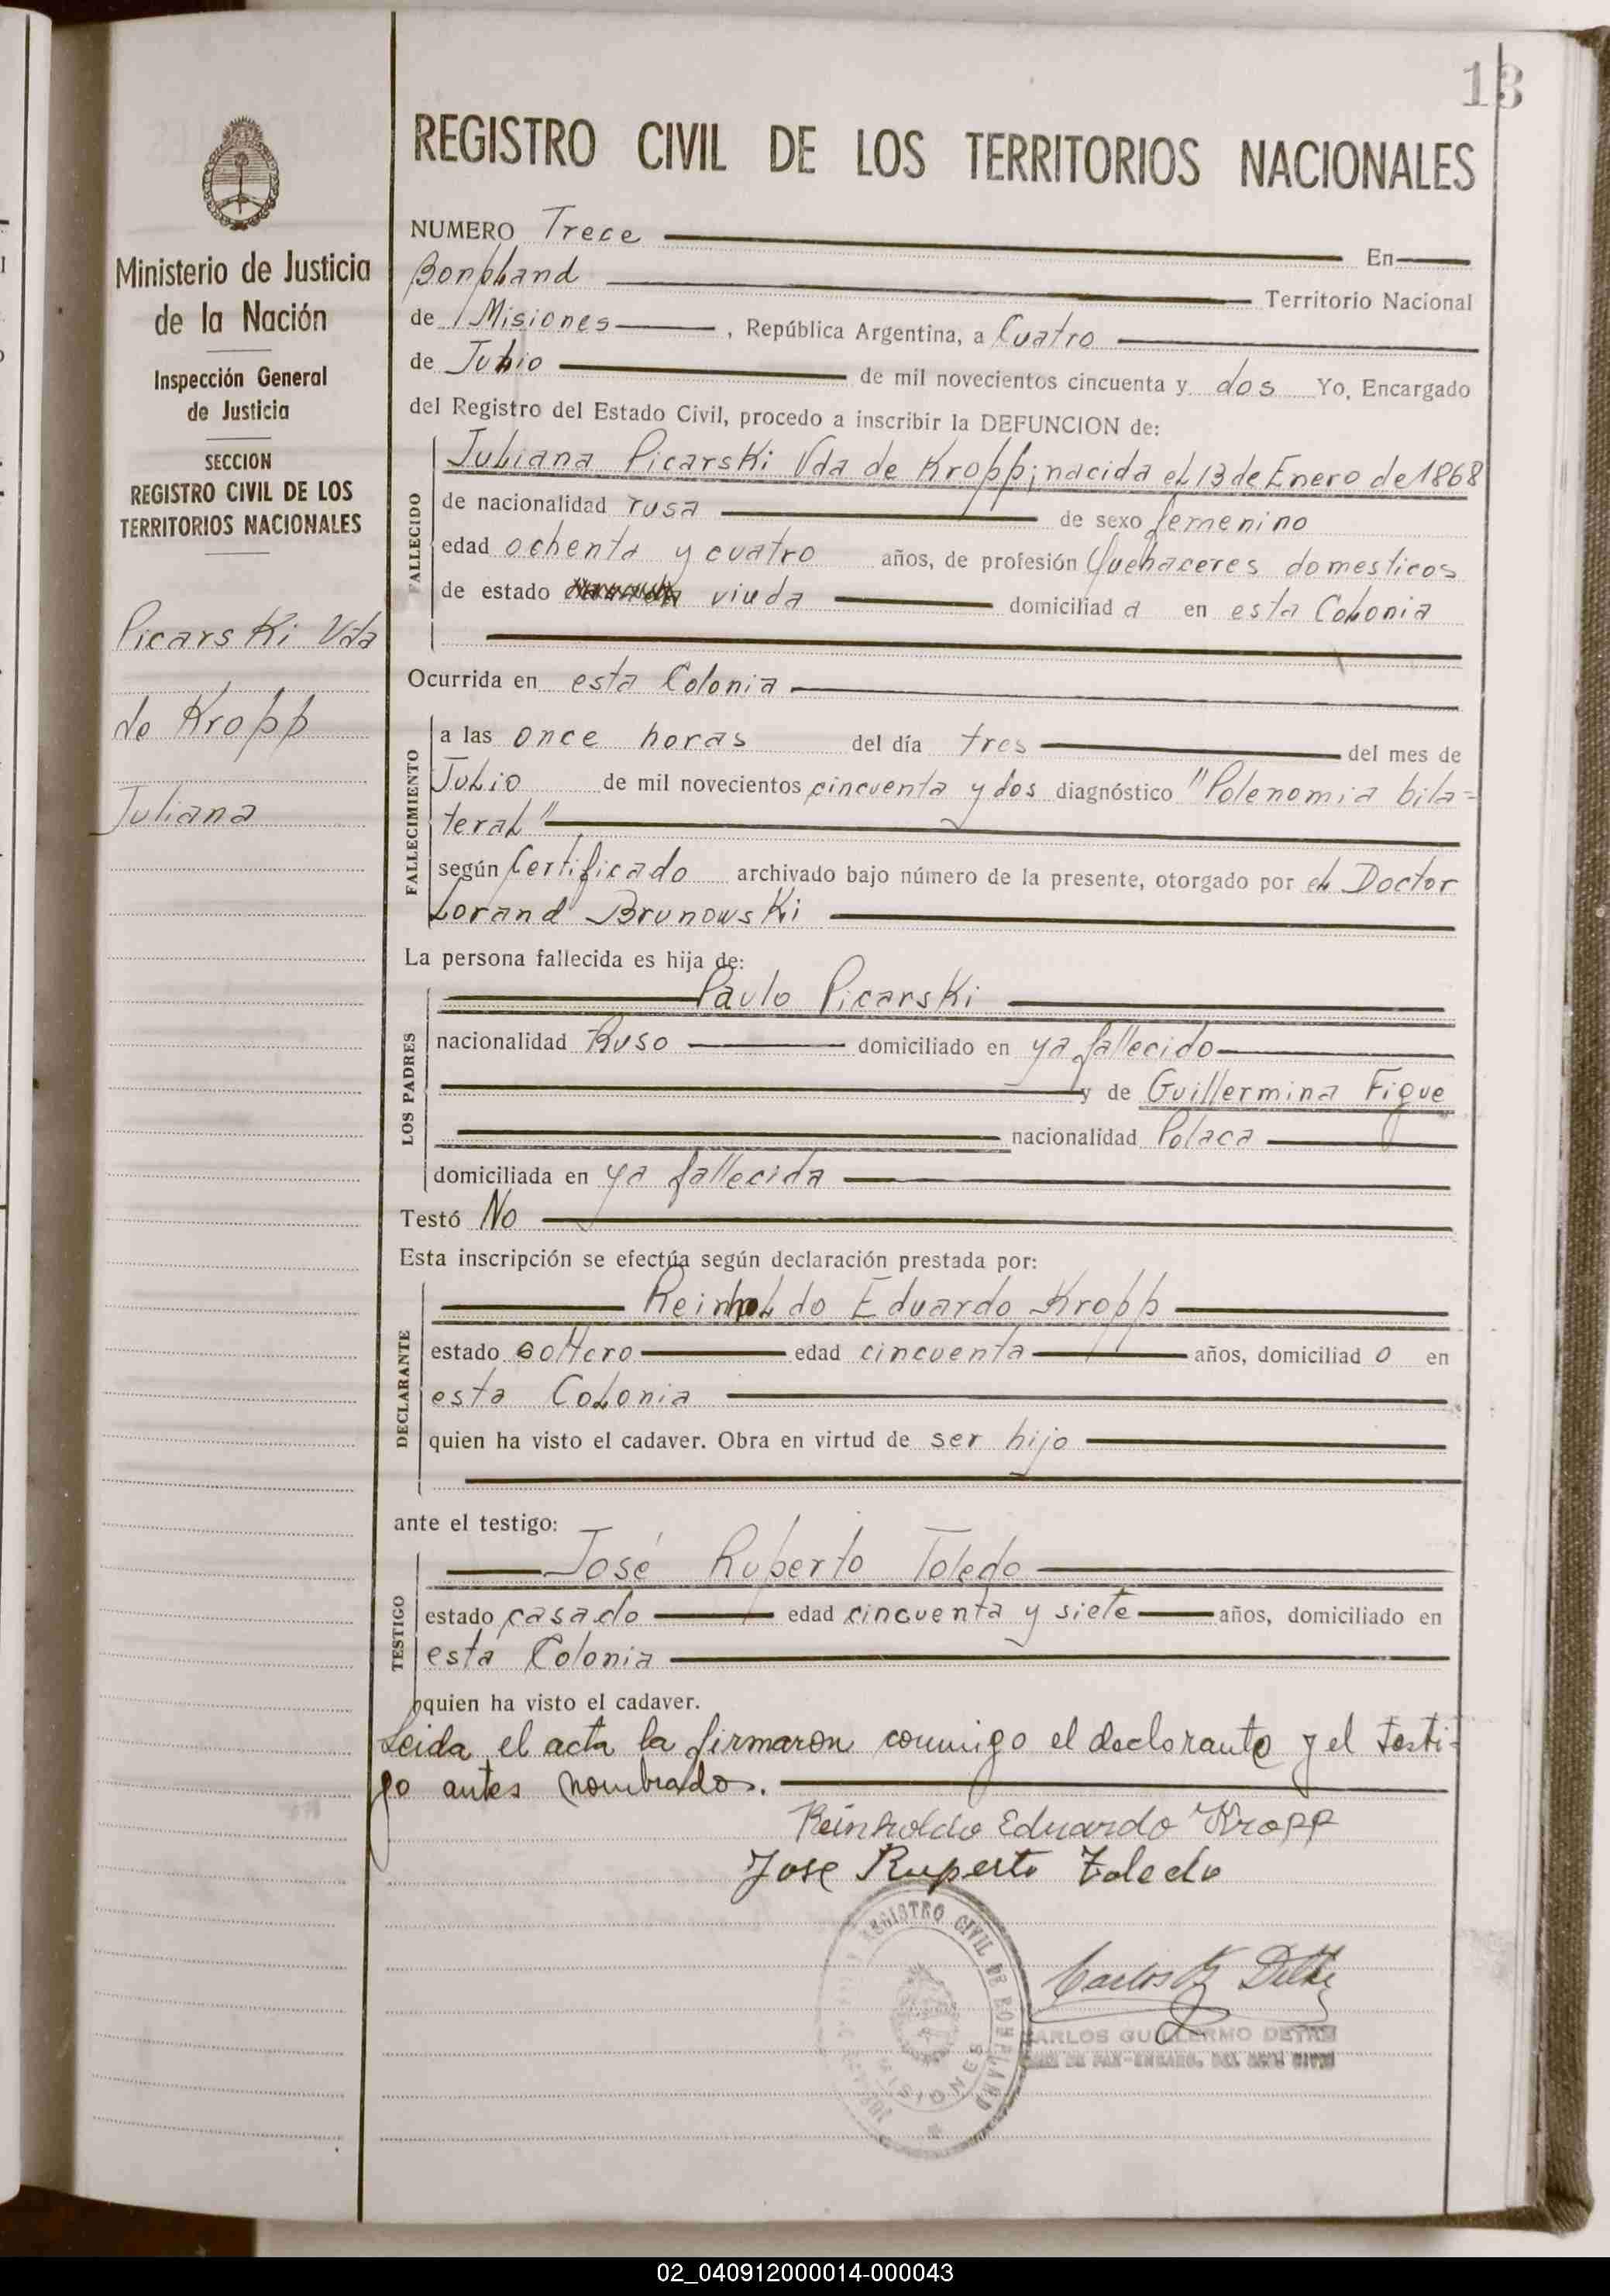 13
REGISTRO CIVIL DE LOS TERRITORIOS NACIONALES
Ministerio de Justicia
de la Nación
Inspección General
de Justicia
SECCION
REGISTRO CIVIL DE LOS
TERRITORIOS NACIONALES
Picarski Vda
de Kropp
Juliana
NUMERO Trece En
Bonpland Territorio Nacional
de Misiones , República Argentina, a Cuatro
de Julio de mil novecientos cincuenta y dos Yo, Encargado
del Registro del Estado Civil, procedo a inscribir la DEFUNCION de:
FALLECIDO
Juliana Picarski Vda de Kropp; nacida el 13 de Enero de 1868
de nacionalidad rusa de sexo femenino
edad ochenta y cuatro años, de profesión Quehaceres domesticos
de estado viuda domiciliad a en esta Colonia
Ocurrida en esta Colonia
FALLECIMIENTO
a las once horas del día tres del mes de
Julio de mil novecientos cincuenta y dos diagnóstico "Polenomia bila=
teral"
según Certificado archivado bajo número de la presente, otorgado por el Doctor
Lorand Brunowski
La persona fallecida es hija de:
LOS PADRES
Paulo Picarski
nacionalidad Ruso domiciliado en ya fallecido
y de Guillermina Figue
nacionalidad Polaca
domiciliada en ya fallecida
Testó No
Esta inscripción se efectúa según declaración prestada por:
DECLARANTE
Reinholdo Eduardo Kropp
estado soltero edad cincuenta años, domiciliad o en
esta Colonia
quien ha visto el cadaver. Obra en virtud de ser hijo
ante el testigo:
TESTIGO
José Ruperto Toledo
estado casado edad cincuenta y siete años, domiciliado en
esta Colonia
quien ha visto el cadaver.
Leida el acta la firmaron conmigo el declarante y el testi=
go antes nombrados.
Reinholdo Eduardo Kropp
Jose Ruperto Toledo
REGISTRO CIVIL DE BONPLAND
MISIONES
Carlos G
CARLOS GUILLERMO
JUEZ DE PAZ-ENCARG. DEL REG. CIVIL
02_040912000014-000043